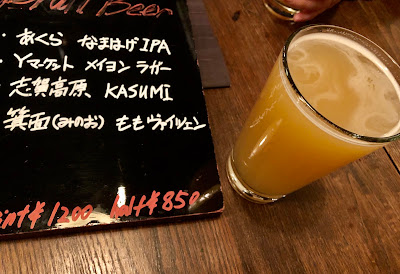 Beer
・あくら なまはげIPA
・Yマーケット メイヨン ラガー
・志賀高原 KASUMI
・箕面(みのお) ももヴァイツェン
int¥1200 half¥850